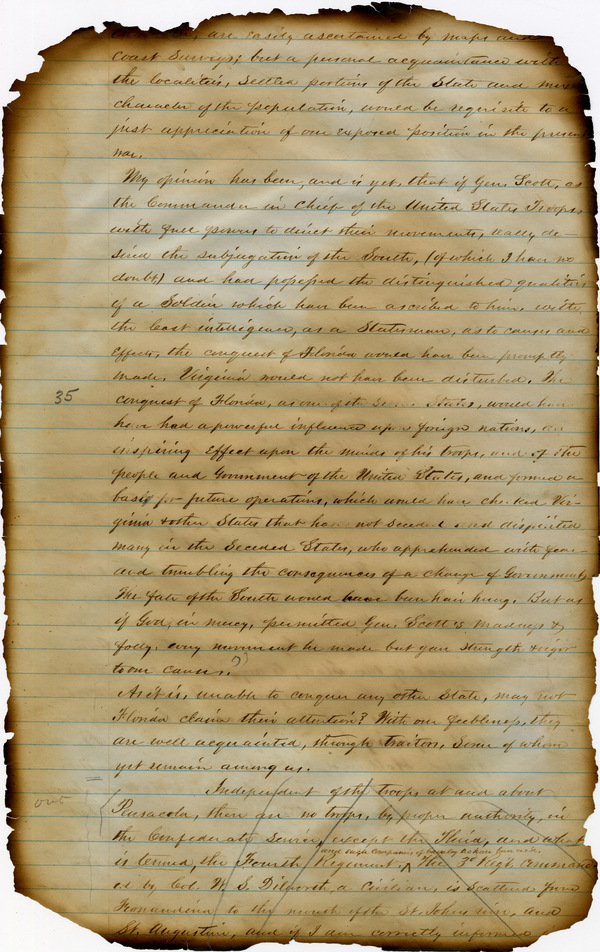 are easily ascertained by maps and
coast Surveys; but a personal acquaintance with
the localities, settled portions of the State and mixed
character of the population, would be requisite to a
just appreciation of our exposed position in the present
war.
My opinion has been, and is yet, that if Gen. Scott, as
the Commander in Chief of the United States Troops
with full powers to direct their movements, really de-
sired the subjugation of the South, (of which I have no
doubt) and had possessed the distinguished qualities
of a Soldier which have been ascribed to him, with
the least intelligence, as a Statesman, as to causes and
effects, the conquest of Florida would have been promptly
made. Virginia would not have been disturbed. The
35
conquest of Florida, as one of the States, would have
have had a powerful influence upon foreign nations, an
inspiring effect upon the minds of his troops, and of the
people and Government of the United States, and formed a
basis for future operations, which would have checked Vir-
ginia & other States that had not seceded and dispirited
many in the Seceded States, who apprehended with fear
and trembling the consequences of a change of Governments.
The fate of the South would have been hair hung. But as
if God, in mercy, permitted Gen. Scott's madness &
folly, every movement he made but gave strength & vigor
to our cause.
As it is, unable to conquer any other State, may not
Florida claim their attention? With our feebleness, they
are well acquainted, through traitors, some of whom
yet remain among us.
Independent of the troops at and about
out
Pensacola, there are no troops, by proper authority, in
the Confederate service, except the Third, and what
is termed, the Fourth Regiment. The 3d Regt. command-
ed by Col. W. S. Dilworth, a Civilian, is scattered from
Fernandina to the mouth of the St. Johns river, and
St. Augustine, and if I am correctly informed